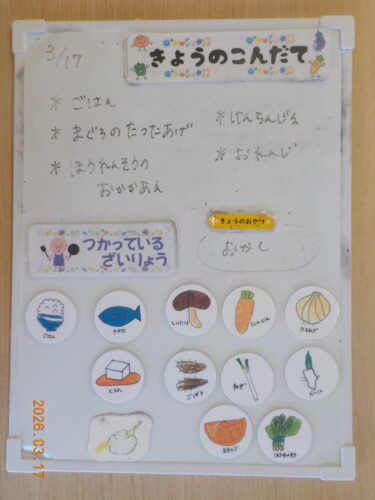 きょうのこんだて
3/17
* ごはん
* まぐろのたつたあげ
* ほうれんそうの
おかかあえ
* けんちんじる
* おれんじ
きょうのおやつ
おかし
つかっている
ざいりょう
ごはん
さかな
しいたけ
にんじん
たまねぎ
とうふ
ごぼう
ねぎ
だいこん
おれんじ
ほうれんそう
2026.03.17